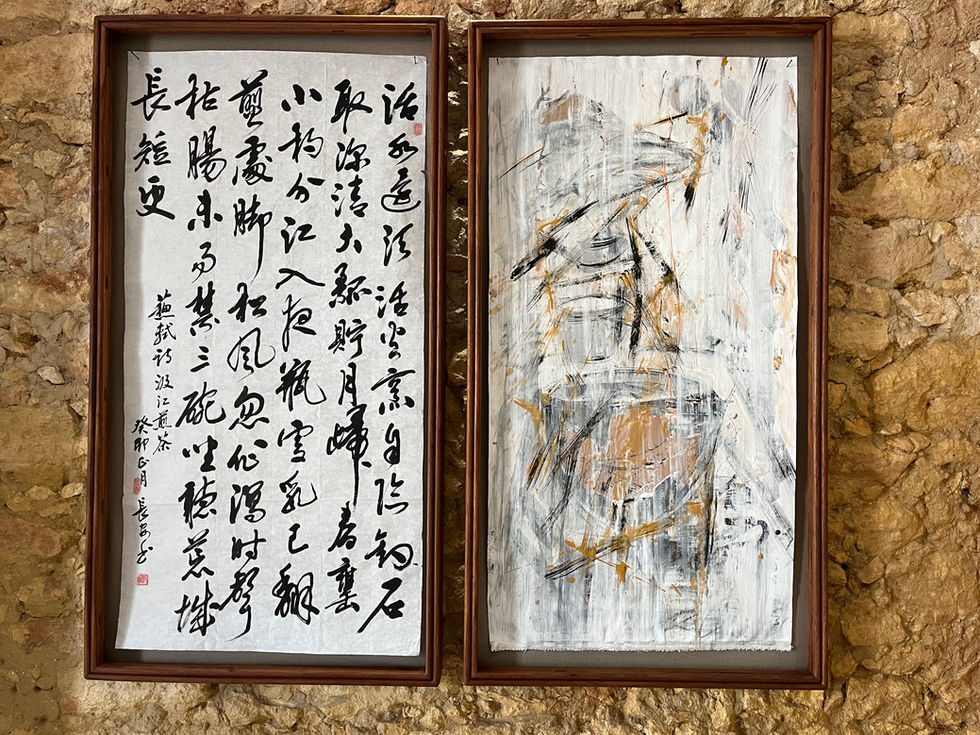 活水還須活火烹自臨釣石
取深清大瓢貯月歸春甕
小杓分江入夜瓶雪乳已翻
煎處脚松風忽作瀉時聲
枯腸未易禁三碗坐聽荒城
長短更
蘇軾詩汲江煎茶
癸卯正月